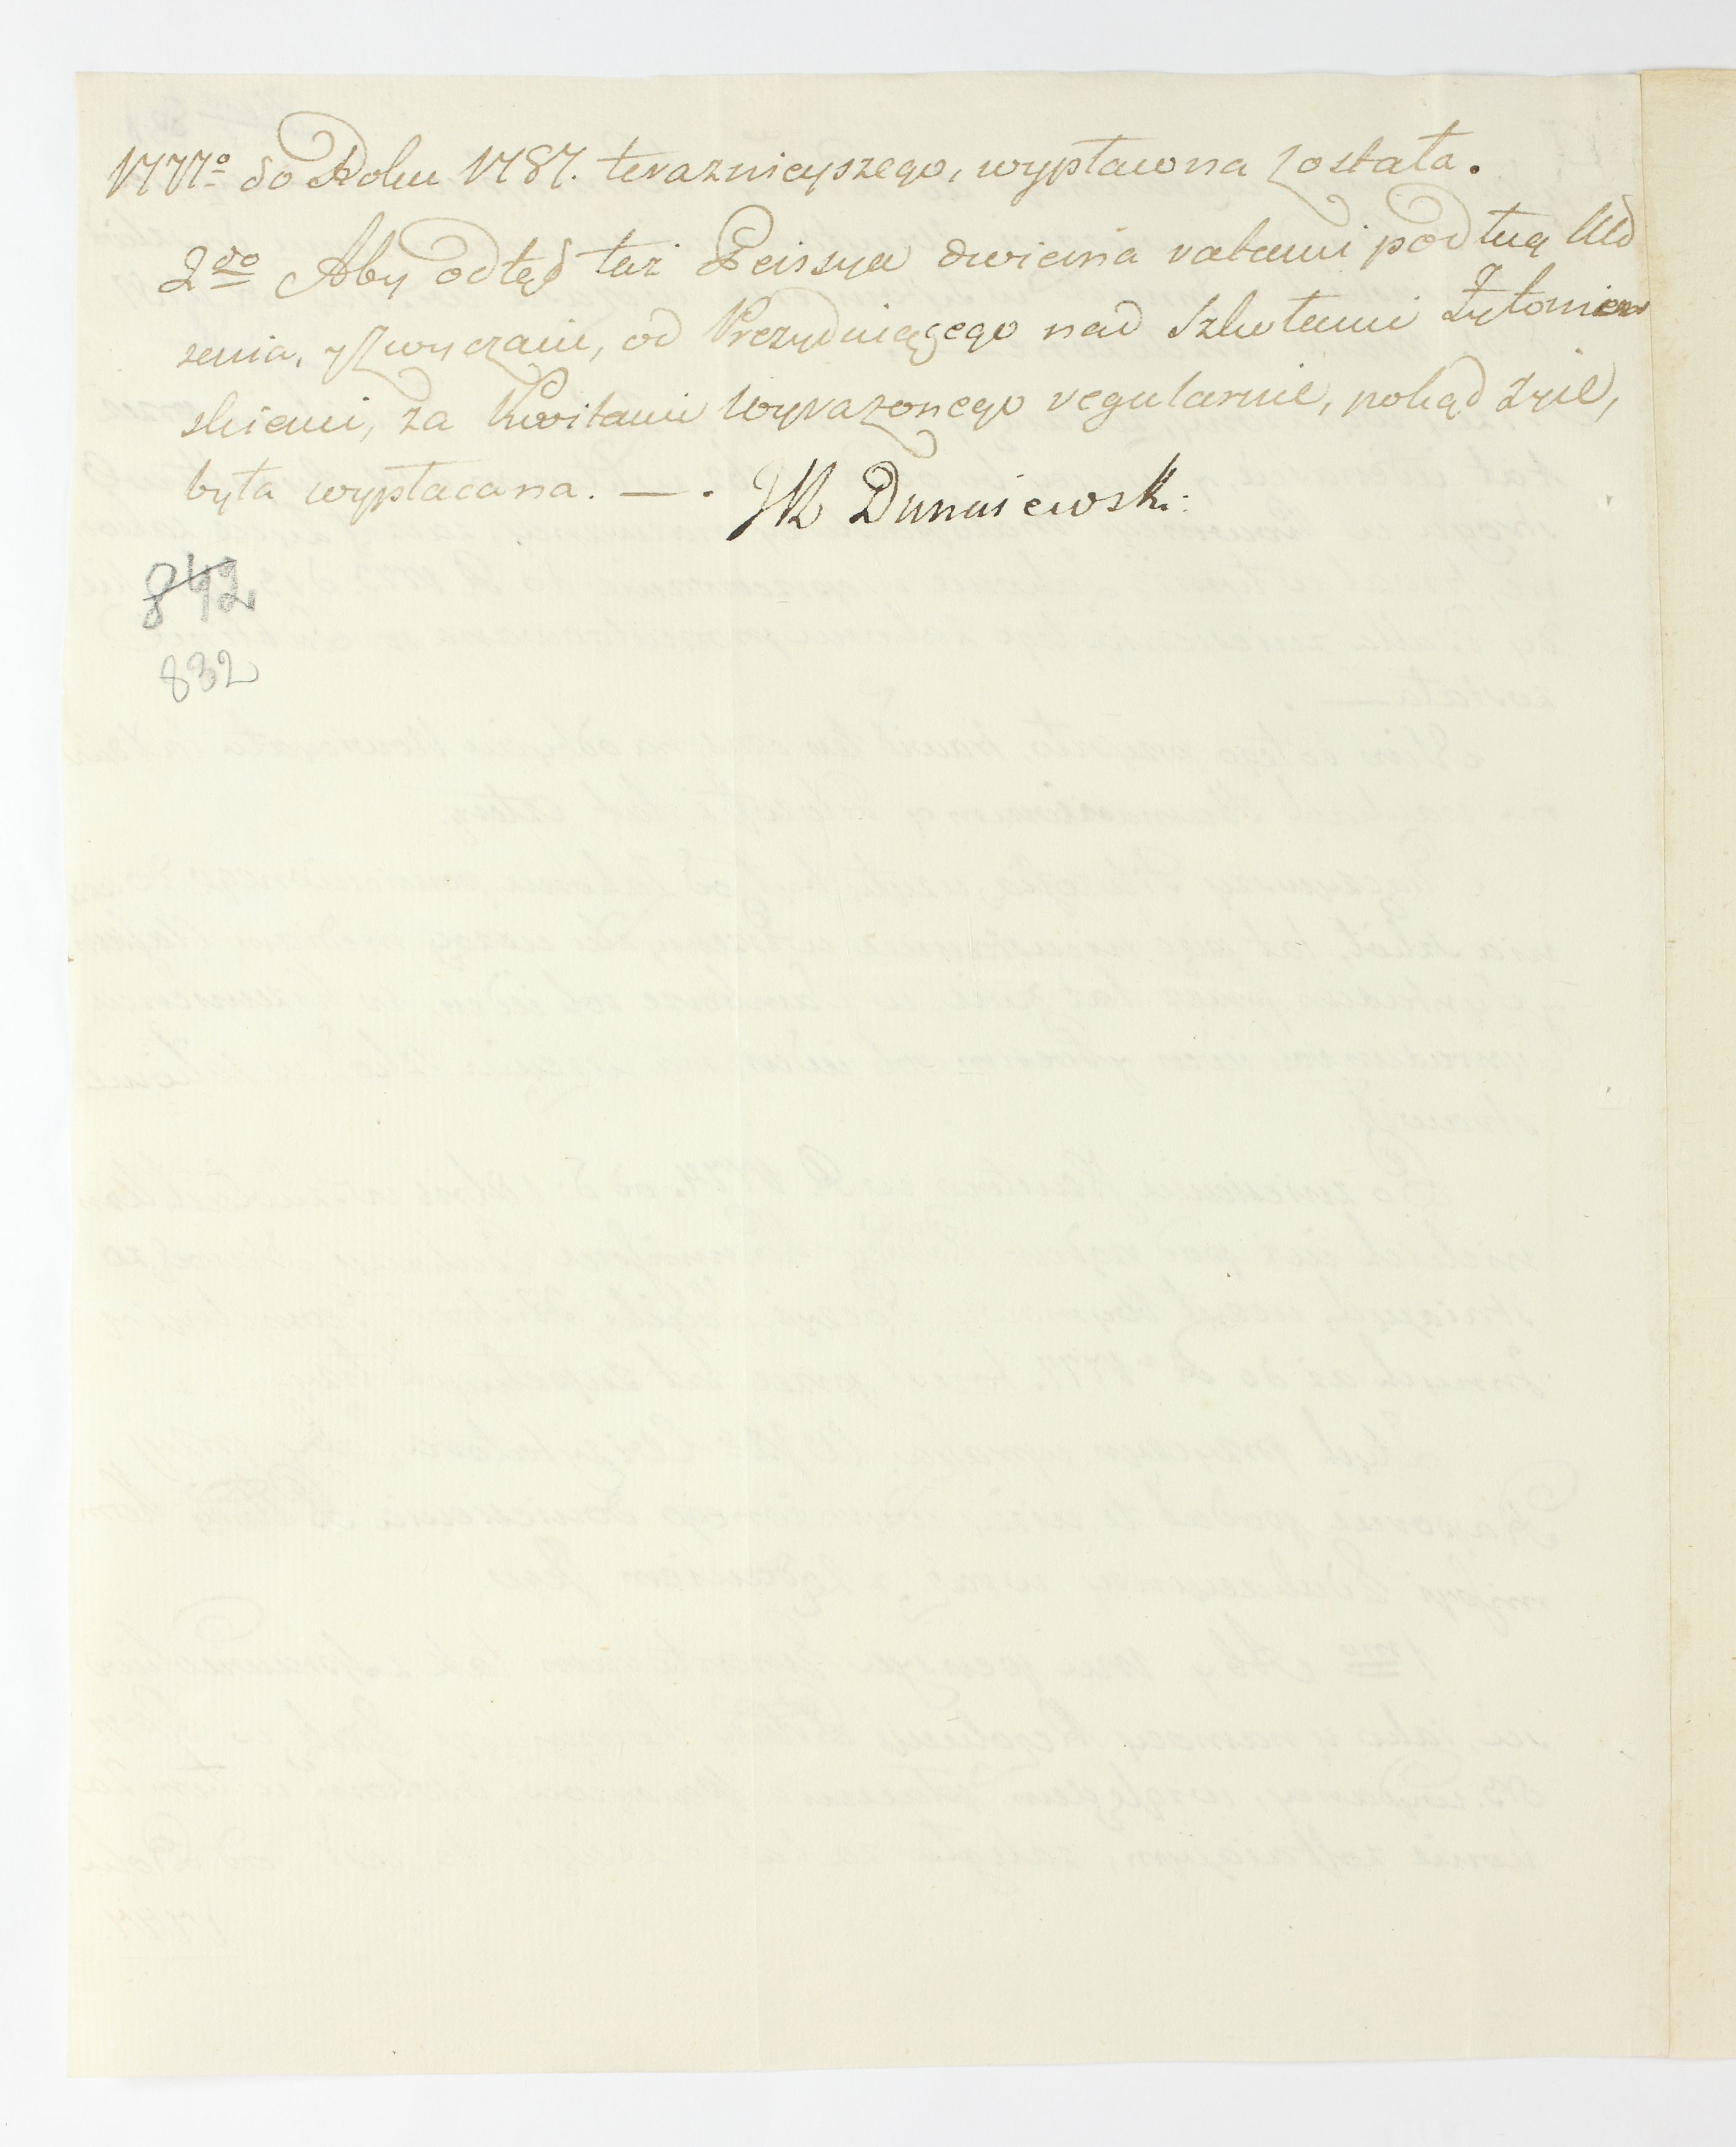 1777o do Roku 1787. teraznieyszego, wypłacona została.
2do Aby odtąd taż Pensya dwiema ratami podług Urd
zenia, y zwyczaiu, od Prezyduiącego nad Szkołami Żytomier
skiemi, za Kwitami wyrazonego regularnie, pokąd żyie,
była wypłacana. — .
JK Dunaiewski:
842
832